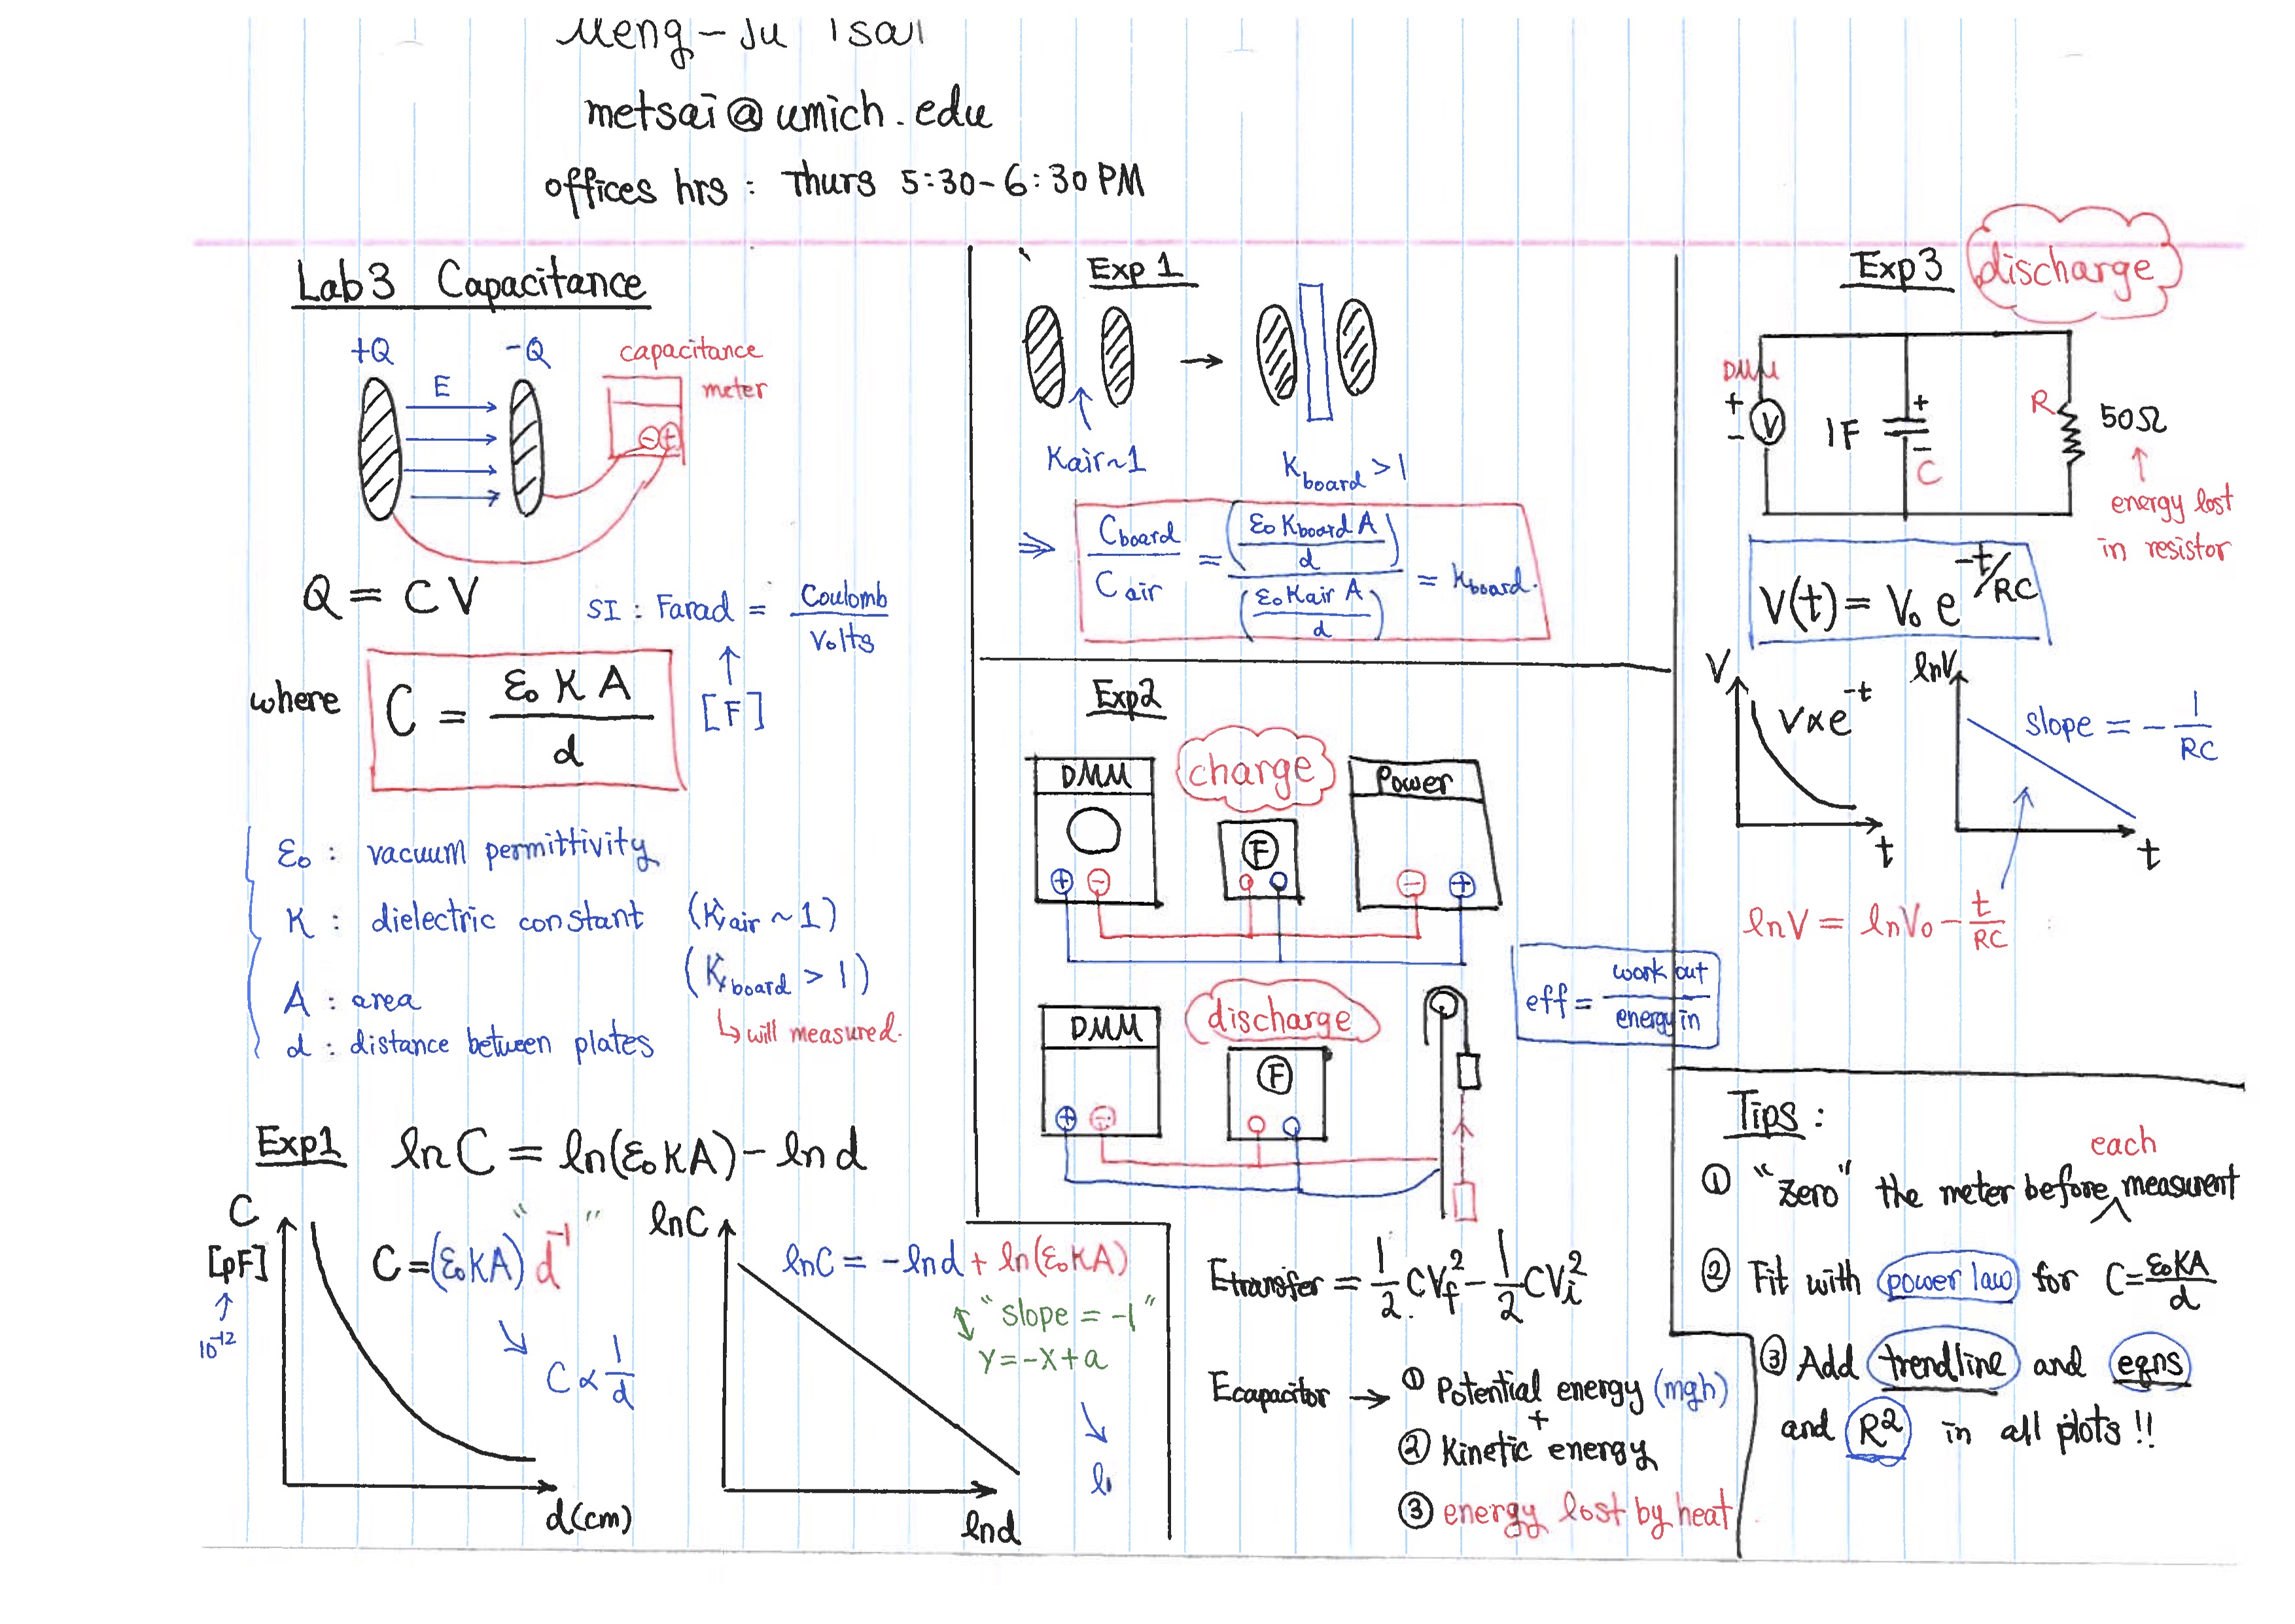 Meng-Ju Tsai
metsai@umich.edu
offices hrs : Thurs 5:30-6:30 PM
Lab3 Capacitance
+Q -Q
E
capacitance
meter
- +
Q = CV
SI : Farad = Coulomb / Volts
[F]
where C = ε₀ K A / d
ε₀ : vacuum permittivity
K : dielectric constant (Kair ~ 1)
(Kboard > 1)
↳ will measured.
A : area
d : distance between plates
Exp1 lnC = ln(ε₀KA) - lnd
C
[pF]
↑
10⁻¹²
C = (ε₀KA) "d⁻¹"
↘
C ∝ 1/d
d(cm)
lnC
lnC = -lnd + ln(ε₀KA)
"slope = -1"
y = -x + a
↘
lnd
Exp 1
→
Kair ~ 1
Kboard > 1
⇒ Cboard / Cair = (ε₀ Kboard A / d) / (ε₀ Kair A / d) = Kboard.
Exp2
DMM charge Power
F
+ - - +
DMM discharge
F
+ -
eff = work out / energy in
Etransfer = 1/2 CVf² - 1/2 CVi²
Ecapacitor → ① Potential energy (mgh)
+
② Kinetic energy
③ energy lost by heat
Exp3 discharge
DMM
+
-
V
1F
+
-
C
R
50Ω
↑
energy lost
in resistor
V(t) = V₀ e^-t/RC
V
V ∝ e^-t
t
lnV
slope = - 1/RC
t
lnV = lnV₀ - t/RC
Tips :
each
① "zero" the meter before ^ measurent
② Fit with power law for C = ε₀KA / d
③ Add trendline and eqns
and R² in all plots !!